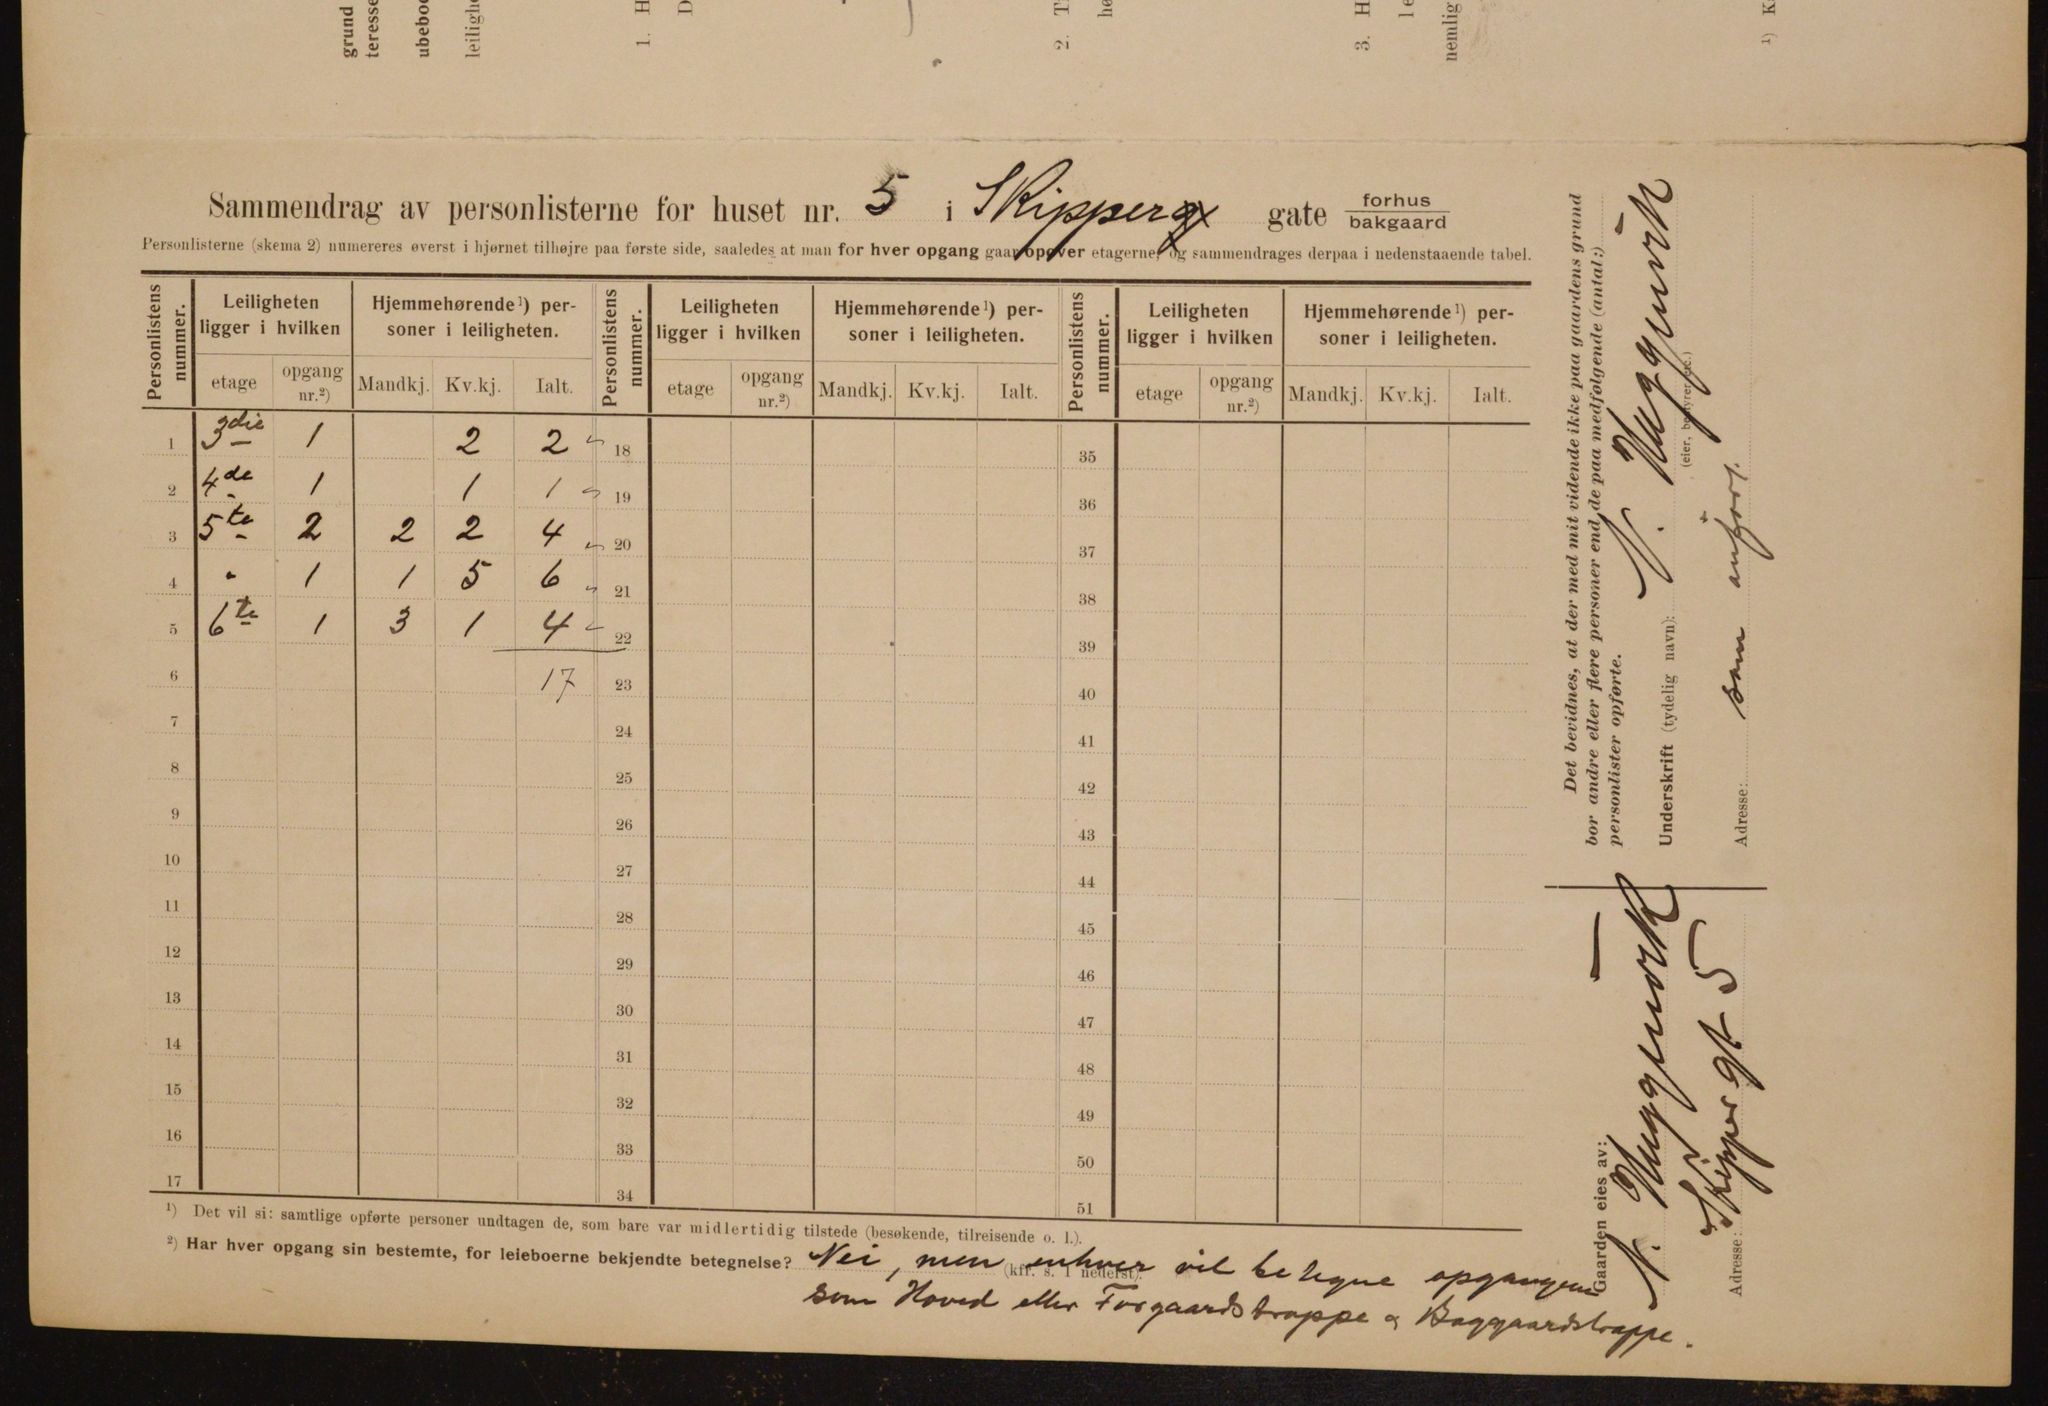 grund
teresse
ubeboe
leilighe
1. H
D
2. T
3. H
nemlig
¹) K
Sammendrag av personlisterne for huset nr. 5 i Skippergt gate forhus
bakgaard
Personlisterne (skema 2) numereres øverst i hjørnet tilhøjre paa første side, saaledes at man for hver opgang gaar opover etagerne, og sammendrages derpaa i nedenstaaende tabel.
Personlistens nummer. Leiligheten ligger i hvilken Hjemmehørende¹) personer i leiligheten. Personlistens nummer. Leiligheten ligger i hvilken Hjemmehørende¹) personer i leiligheten. Personlistens nummer. Leiligheten ligger i hvilken Hjemmehørende¹) personer i leiligheten.
etage opgang nr.²) Mandkj. Kv.kj. Ialt. etage opgang nr.²) Mandkj. Kv.kj. Ialt. etage opgang nr.²) Mandkj. Kv.kj. Ialt.
1 3die 1 2 2 18 35
2 4de 1 1 1 19 36
3 5te 2 2 2 4 20 37
4 " 1 1 5 6 21 38
5 6te 1 3 1 4 22 39
6 17 23 40
7 24 41
8 25 42
9 26 43
10 27 44
11 28 45
12 29 46
13 30 47
14 31 48
15 32 49
16 33 50
17 34 51
¹) Det vil si: samtlige opførte personer undtagen de, som bare var midlertidig tilstede (besøkende, tilreisende o. l.).
²) Har hver opgang sin bestemte, for leieboerne bekjendte betegnelse? Nei, men enhver vil betegne opgangene
(kfr. s. 1 nederst).
som Hoved eller Forgaardstrappe & Baggaardstrappe.
Det bevidnes, at der med mit vidende ikke paa gaardens grund
bor andre eller flere personer end de paa medfølgende (antal:)
personlister opførte.
Underskrift (tydelig navn): N. Huggenvik
(eier, bestyrer etc.)
Adresse: som anført.
Gaarden eies av:
N. Huggenvik
Adresse: Skippergt 5